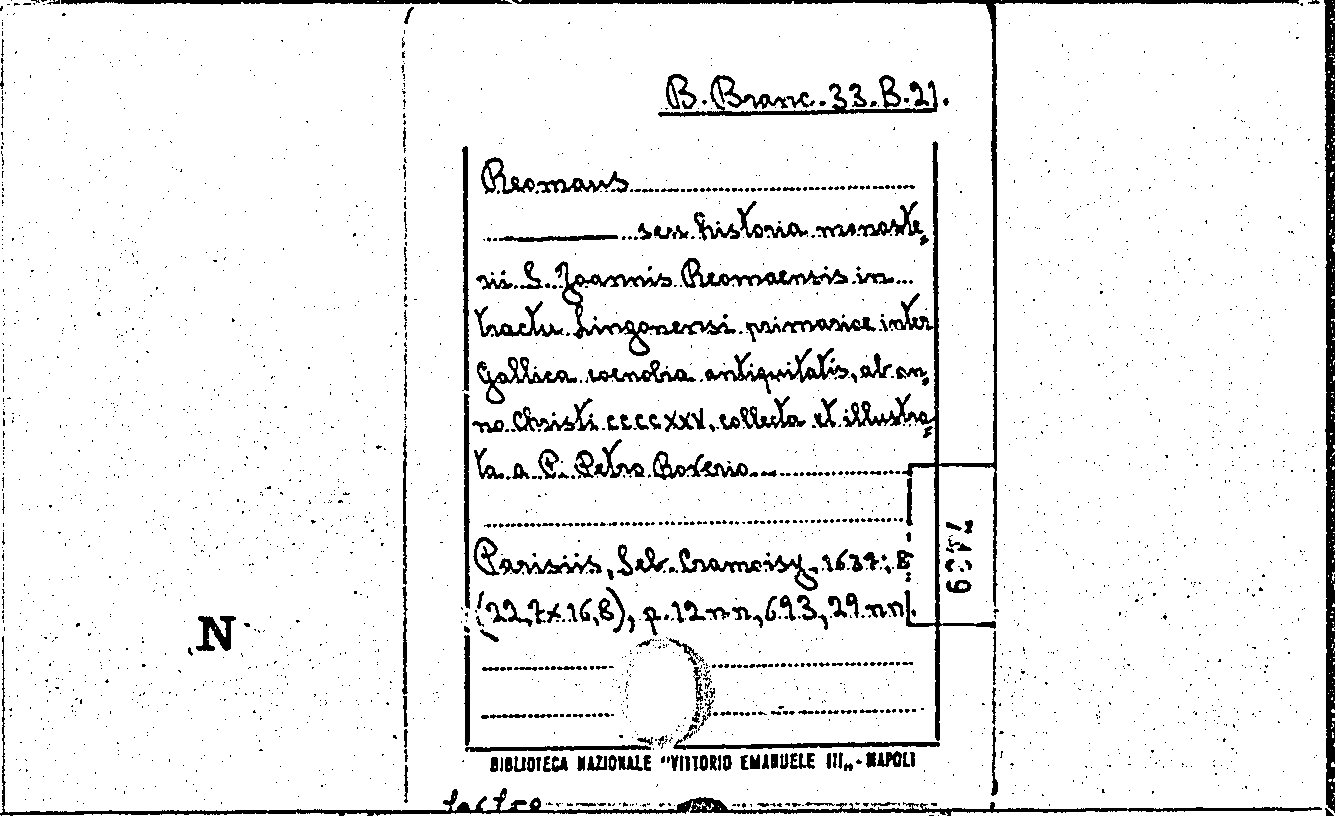 B. Branc. 33. B. 21.
Reomaus
seu historia monaste=
rii S. Joannis Reomaensis in
tractu Lingonensi primariae inter
Gallica coenobia antiquitatis, ab an=
no Christi CCCCXXV, collecta et illustra=
ta a P. Petro Roverio
Parisiis, Seb. Cramoisy, 1637; 8°
(22,7x16,8), p. 12 nn, 693, 29 nn.
7439
N
BIBLIOTECA NAZIONALE "VITTORIO EMANUELE III„ - NAPOLI